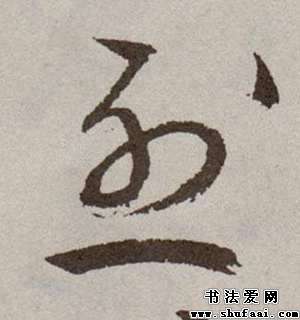 烈
书法爱网
www.shufaai.com